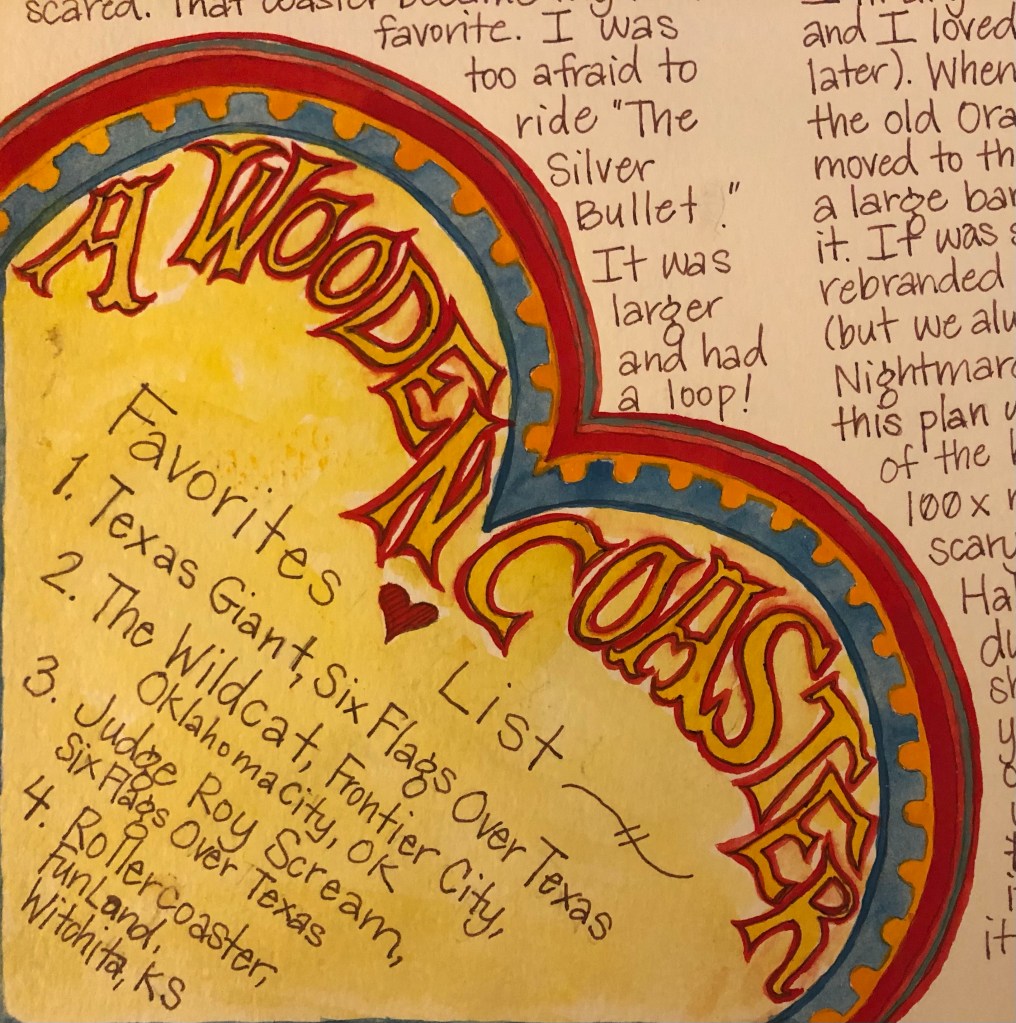 scared. That coaster became my
favorite. I was
too afraid to
ride "The
Silver
Bullet."
It was
larger
and had
a loop!
and I loved
later). When
the old Ora
moved to th
a large bar
it. If was s
rebranded
(but we alw
Nightmare
this plan
of the
100x
scary
Hal
du
sh
it
A WOODEN COASTER
Favorites ♥ List
1. Texas Giant, Six Flags Over Texas
2. The Wildcat, Frontier City,
Oklahoma City, OK
3. Judge Roy Scream,
Six Flags Over Texas
4. Rollercoaster,
FunLand,
Witchita, KS